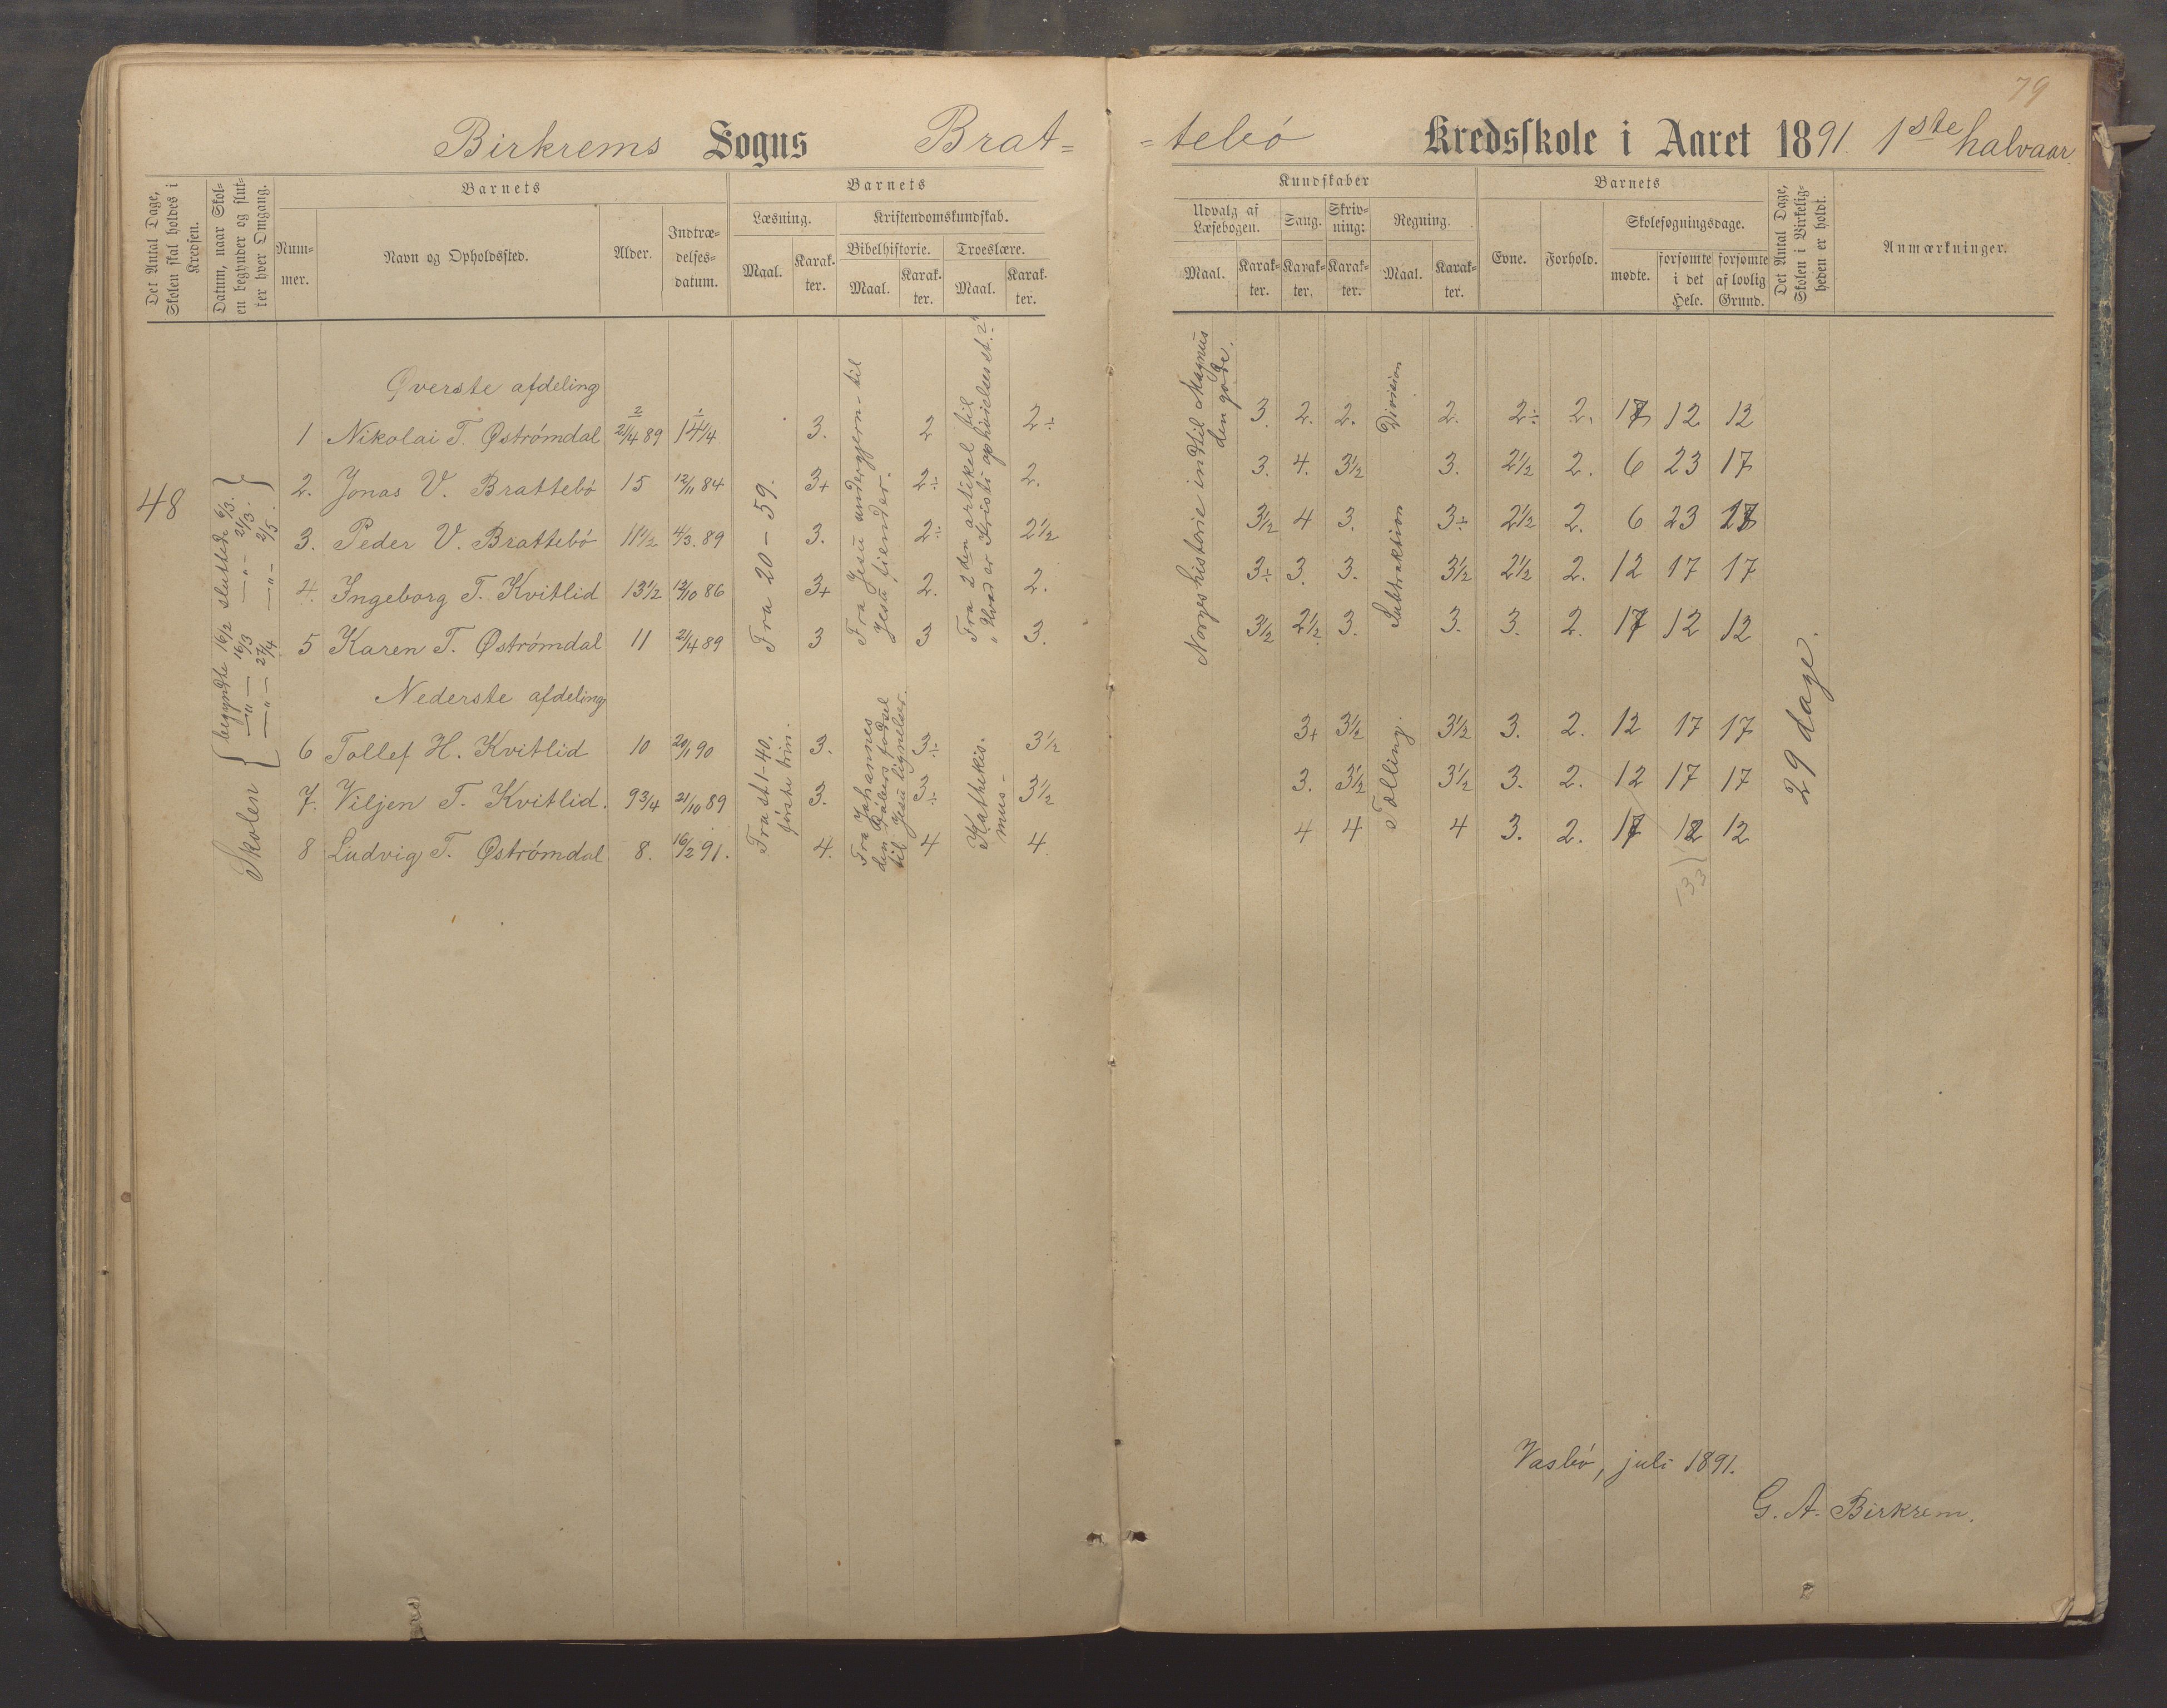 79
Birkrems Sogns Brat=
=tebø Kredsskole i Aaret 1891. 1ste halvaar.
Det Antal Dage, Skolen skal holdes i Kredsen.
Datum, naar Skolen begynder og slutter hver Omgang.
Barnets
Nummer.
Navn og Opholdssted.
Alder.
Indtrædelsesdatum.
Barnets
Læsning.
Maal.
Karakter.
Kristendomskundskab.
Bibelhistorie.
Maal.
Karakter.
Troeslære.
Maal.
Karakter.
Kundskaber
Udvalg af Læsebogen.
Maal.
Karakter.
Sang.
Karakter.
Skrivning:
Karakter.
Regning.
Maal.
Karakter.
Barnets
Evne.
Forhold.
Skolesøgningsdage.
mødte.
forsømte i det Hele.
forsømte af lovlig Grund.
Det Antal Dage, Skolen i Virkeligheden er holdt.
Anmærkninger.
48
Skolen { begyndte 16/2 sluttede 6/3. }
—"— 16/3 —"— 21/3.
—"— 27/4 —"— 2/5.
Øverste afdeling
1 Nikolai T. Østrømdal 21/4 89 14 1/4 3. 2 2÷ 3. 2. 2. 2. 2÷ 2. 17 12 12
2. Jonas V. Brattebø 15 12/11 84 3+ 2÷ 2. 3. 4. 3½ 3. 2½ 2. 6 23 17
3. Peder V. Brattebø 11½ 4/3. 89 3. 2÷ 2½ 3½ 4 3. 3÷ 2½ 2. 6 23 17
4. Ingeborg T. Kvitlid 13½ 12/10 86 3+ 2. 2. 3÷ 3. 3. 3½ 2½ 2. 12 17 17
5 Karen T. Østrømdal 11 21/4 89 3 3 3. 3½ 2½ 3. 3. 3. 2. 17 12 12
Fra 20-59.
Fra Jesu undergjern- til
Jesu fiender.
Fra 2den artikel til
"Hvad er Kristi ophøielses st.?"
Norges historie indtil Magnus
den gode.
Division
Subtraktion
Nederste afdeling
6 Tollef H. Kvitlid 10 20/1 90 3. 3÷ 3½ 3+ 3½ 3½ 3. 2. 12 17 17
7. Viljen T. Kvitlid. 9¾ 21/10 89 3. 3÷ 3½ 3. 3½ 3½ 3. 2. 12 17 17
8 Ludvig T. Østrømdal 8. 16/2 91. 4. 4 4. 4 4 4 3. 2. 17 12 12
Fra st 1-40.
første trin.
Fra Johannes
den Døbers fødsel
til Jesu lignelser.
Kathekis-
mus-
Tælling.
29 dage.
Vasbø, juli 1891.
G. A. Birkrem.